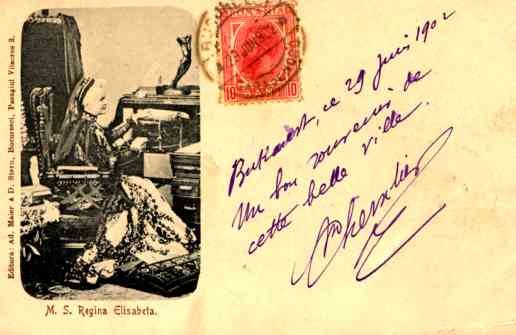 Editura: Ad. Maier & D. Stern, Bucuresci, Pasagiul Vilacros 3.
ROMANIA
10 10
Bukarest, ce 29 Juin 1902
Un bon souvenir de
cette belle ville.
M. S. Regina Elisabeta.